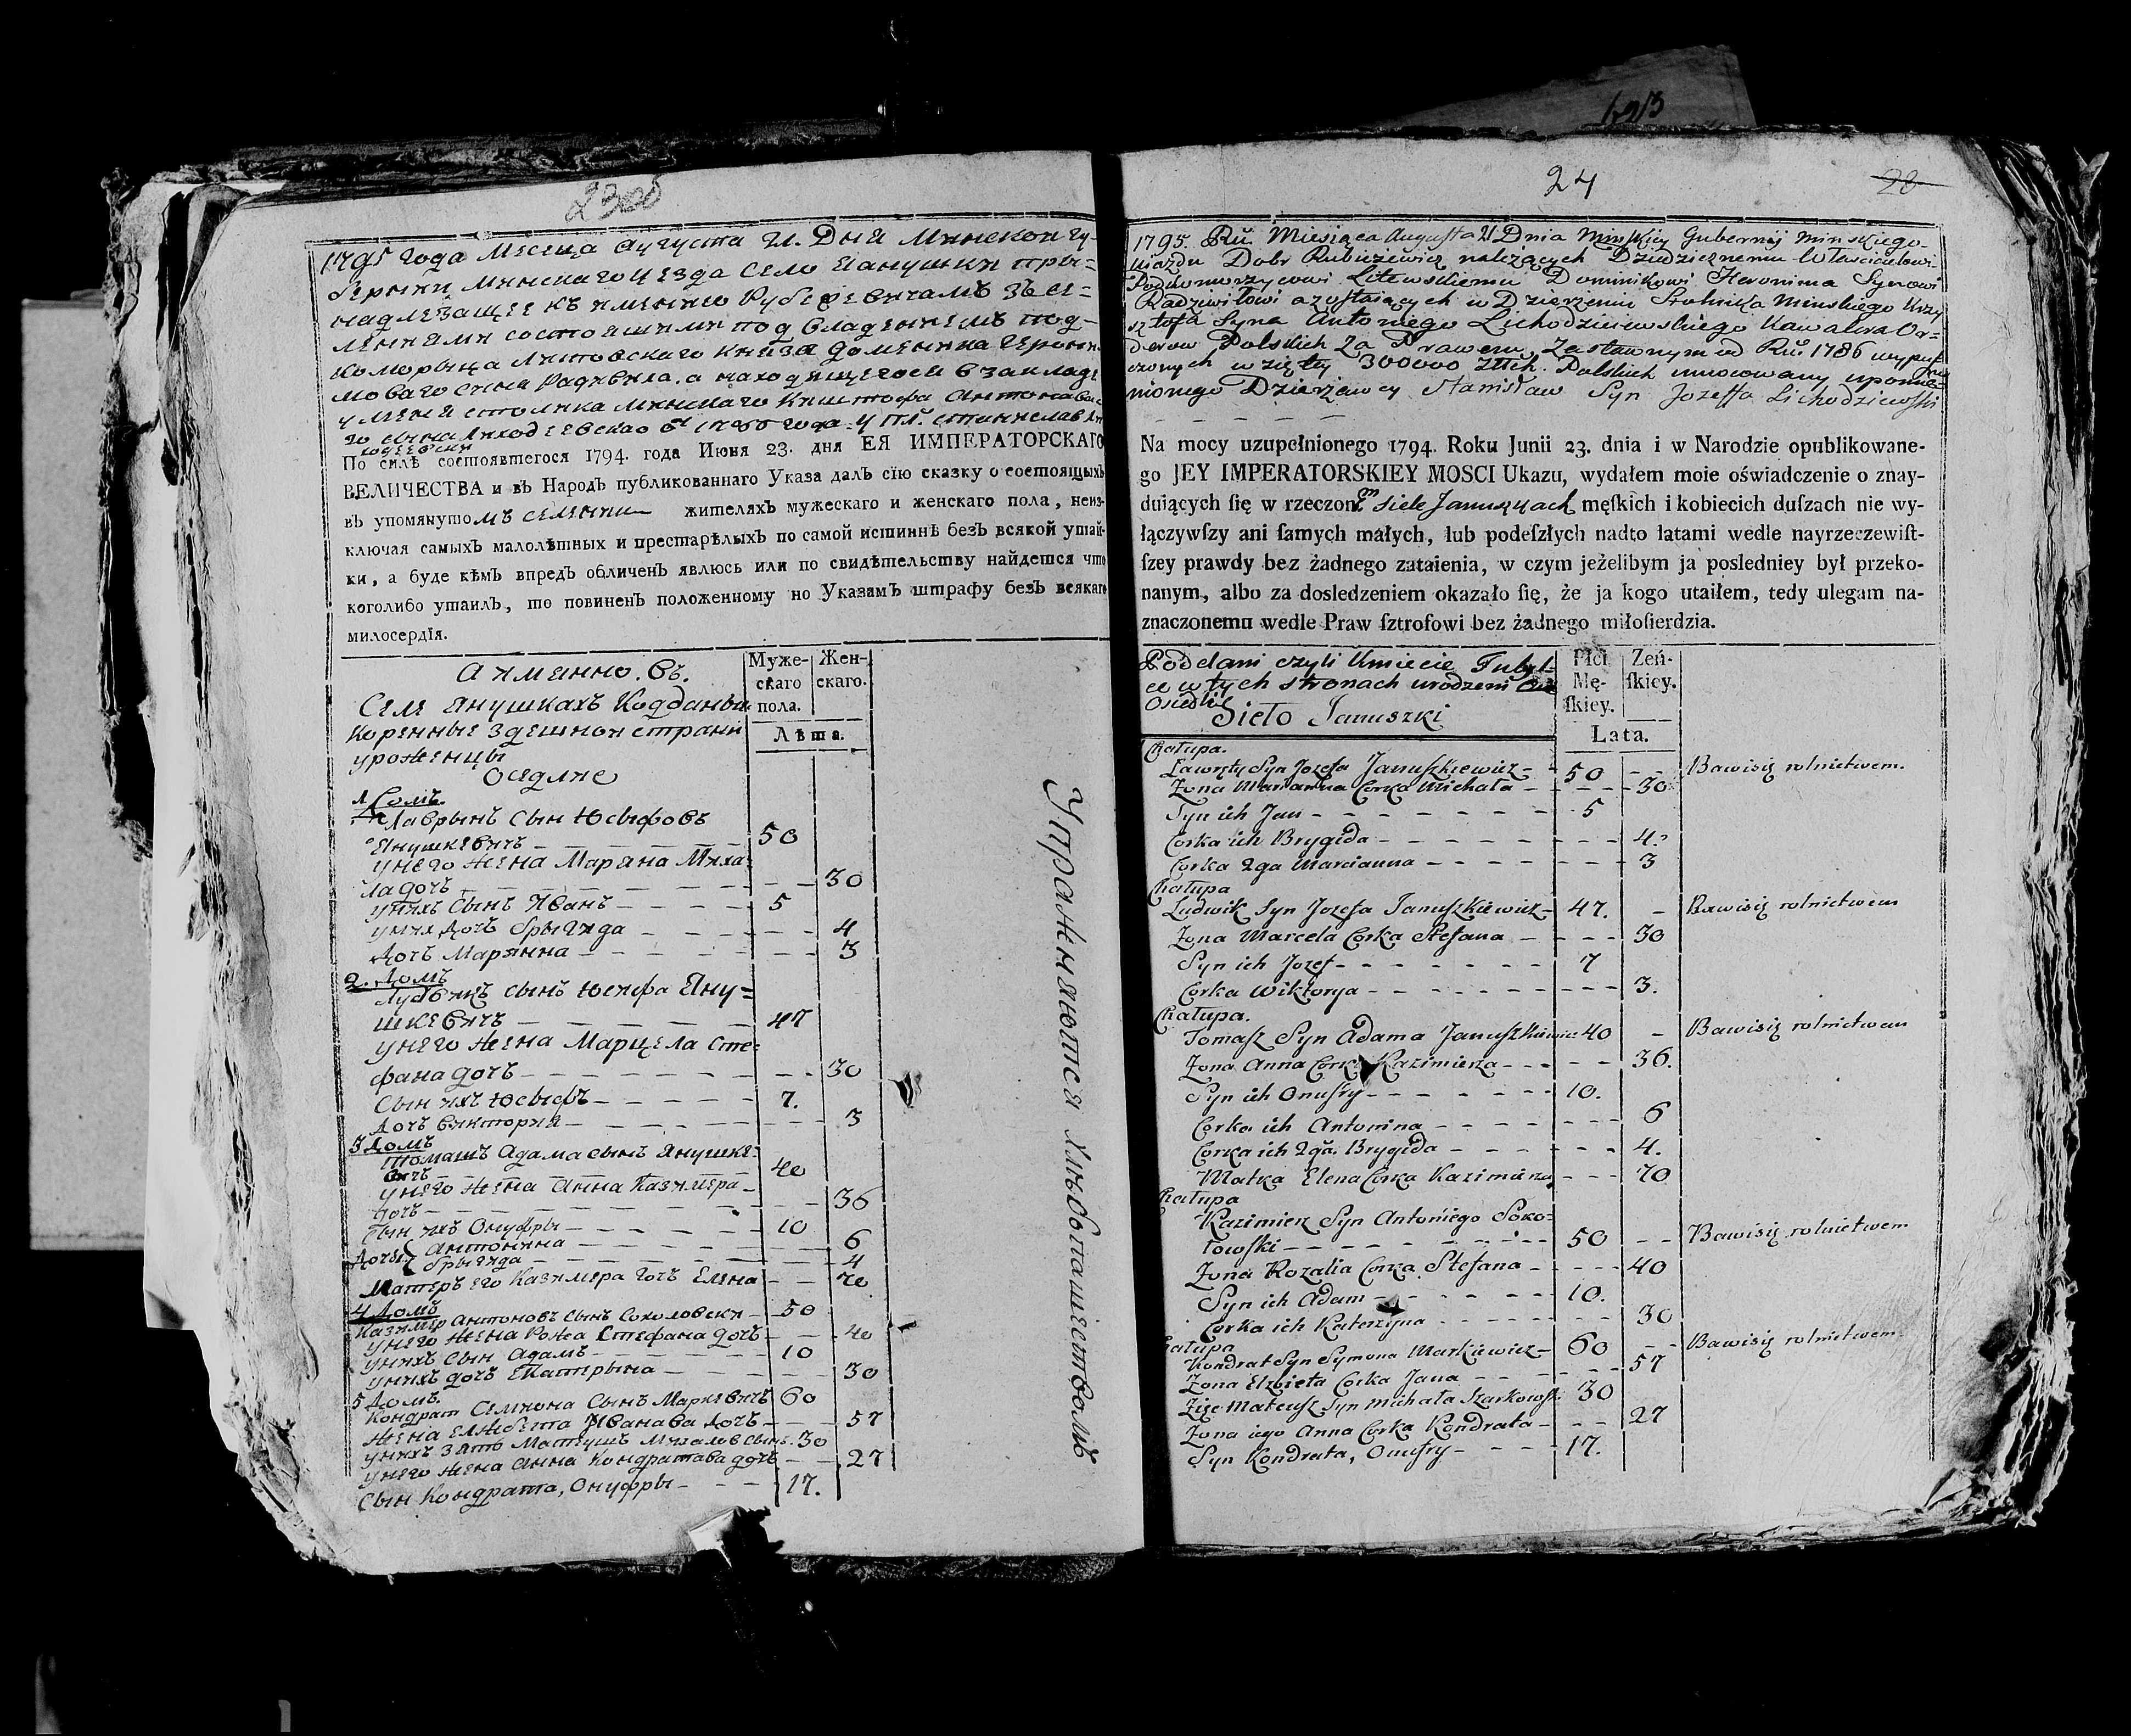 623
23об
1795 Года Месеца Аугуста 21. Дня Минской гу-
берыни Минскаго Уезда Село Янушки при=
надлежащее къ имению Рубежевичамъ зъ се=
лениями состояшими под владениемъ под-
коморыца Литовскаго Княза Доминика Герони
мова сына Радивила. а находящегося в закладе
у мене столника Минскаго Криштофа Антонова
го сына Лиходзеевскаго 1786 года
По силѣ состоявшегося 1794. года Июня 23. дня ЕЯ ИМПЕРАТОРСКАГО
ВЕЛИЧЕСТВА и въ Народъ публикованнаго Указа далъ сїю сказку о состоящыхъ
въ упомянутомъ селении жителяхъ мужескаго и женскаго пола, неиз-
ключая самыхъ малолѣтныхъ и престарѣлыхъ по самой истиннѣ безъ всякой утай-
ки, а буде кѣмъ впредъ обличенъ явлюсь или по свидѣтельству найдется что
коголибо утаилъ, то повиненъ положенному но Указамъ штрафу безъ всякаго
милосердїя.
А именно. Въ.
Селе Янушкахъ
Коренные здешной страни
уроженцы
оседлие
Муже-
скаго
пола.
Жен-
скаго.
Лѣта.
1 Домъ.
Лаврынъ Сын Юсыфовъ
Янушкевичъ — 50
у него жена Маряна Миха=
ла дочъ — 30
у нихъ Сынъ Иванъ — 5
у них Дочъ Брыгида — 4
Дочъ Марянна — 3
2. Домъ
Лудвикъ сынъ Юсифа Яну=
шкевичъ — 47
у него жена Марцела Сте=
фана дочъ — 30
Сын ихъ Юсыфъ — 7.
Дочъ Виктория — 3
3 Домъ
Томашъ Адама сынъ Янушке=
вичъ — 40
у него жена Анна Казимера
дочъ — 36
Сын ихъ Онуфры — 10
Дочъ Антонина — 6
Брыгида — 4
Матеръ его Казимера дочъ Елена — 70
4 Домъ
Казимер Антоновъ Сынъ Соколовски — 50
у него жена Рожа Стефана дочъ — 40
у нихъ Сын Адамъ — 10
у нихъ дочъ Катырына — 30
5 Домъ.
Кондрат Семиона Сынъ Маркевичъ 60
жена Елжбета Иванава дочъ — 57
у нихъ зять Матеушъ Михалов сынъ. 30
у него жена Анна Кондратава дочъ — 27
Сын Кондрата, Онуфры — 17.
Упражняются хлѣбопашествомъ
24
28
1795. Rü. Miesiąca Augusta 21 Dnia Minskiey Gubernij Minskiego
Ujazdu Dobr Rubieżewicz należących Dziedzicznemu Włascicielowi
Podkomorzycowi Litewskiemu Dominikowi Heronima Synowi
Radziwiłowi a zostaiących w Dzierżeniu Stolnika Minskiego Krzy
sztofa Syna Antoniego Lichodziiewskiego Kawalera Or-
derow Polskich za Prawem Zastawnym od Rü 1786 wypusz
czonych w zięty 300000 Złtch. Polskich umocowany upomnie=
nionego Dzierżawcy Stanisław Syn Jozeffa Lichodziewski
Na mocy uzupełnionego 1794. Roku Junii 23. dnia i w Narodzie opublikowane-
go JEY IMPERATORSKIEY MOSCI Ukazu, wydałem moie oświadczenie o znay-
duiących ſię w rzeczonem siele Januszkach męſkich i kobiecich duſzach nie wy-
łączywſzy ani ſamych małych, lub podeſzłych nadto latami wedle nayrzeczewiſt-
ſzey prawdy bez żadnego zataienia, w czym jeżelibym ja posledniey był przeko-
nanym, albo za dosledzeniem okazało ſię, że ja kogo utaiłem, tedy ulegam na-
znaczonemu wedle Praw ſztrofowi bez żadnego miłoſierdzia.
Poddani czyli Kmiecie Tubyl-
ce w tych stronach urodzeni
Osiedli
Sieło Januszki
Płci
Mę-
ſkiey.
Zeń-
ſkiey.
Lata.
Chałupa.
Ławryn Syn Jozefa Januſzkiewicz — 50 — Bawisię rolnictwem.
Zona Marianna Corka Michała — 30
Syn ich Jan — 5
Corka ich Brygida — 4.
Corka 2ga Marcianna — 3
Chałupa
Ludwik Syn Jozefa Januſzkiewicz — 47. — Bawisię rolnictwem
Zona Marcela Corka Stefana — 30
Syn ich Jozef — 7
Corka Wiktorya — 3.
Chałupa.
Tomaſz Syn Adama Januſzkiewicz 40 — Bawisię rolnictwem
Zona Anna Corka Kazimierza — 36.
Syn ich Onufry — 10.
Corka ich Antonina — 6
Corka ich 2ga. Brygida — 4.
Matka Elena Corka Kazimierza — 70
Chałupa
Kazimierz Syn Antoniego Soko=
łowſki — 50 — Bawisię rolnictwem
Zona Rozalia Corka Stefana — 40
Syn ich Adam — 10.
Corka ich Katerzyna — 30
Chałupa
Kondrat Syn Symona Markiewicz — 60 — Bawisię rolnictwem
Zona Elzbieta Corka Jana — 57
Zięc Mateusz Syn Michała Szarkowſki 30
Zona iego Anna Corka Kondrata — 27
Syn Kondrata, Onufry — 17.